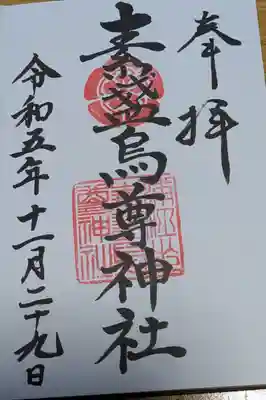 奉拝
素盞烏尊神社
令和五年十一月二十九日